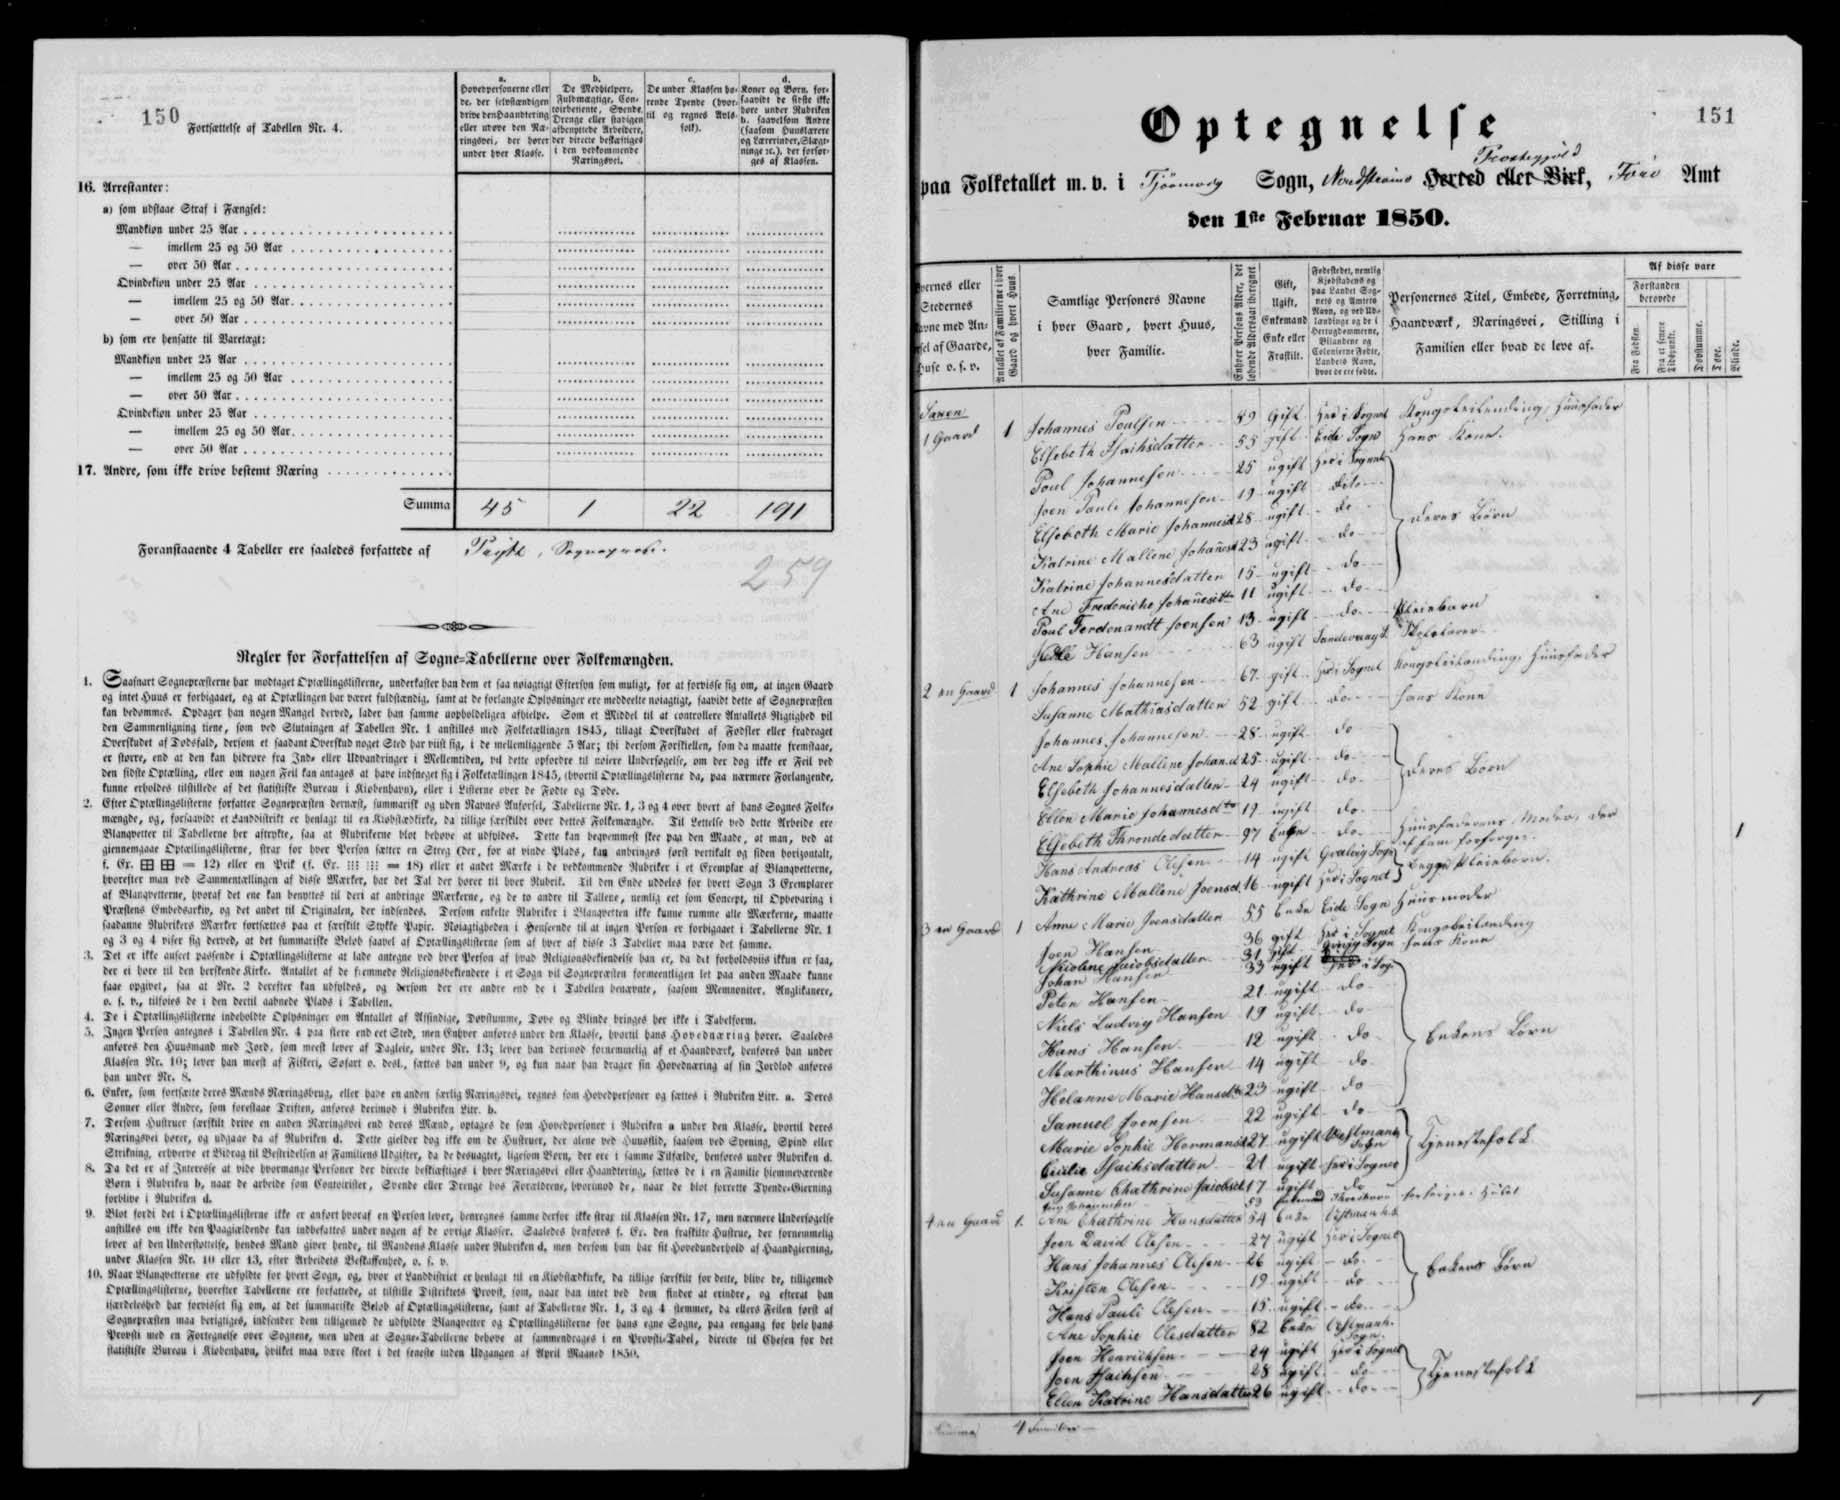 150
Fortsættelse af Tabellen Nr. 4.
a. Hovedpersonerne eller de, der selvstændigen drive den Haandtering eller udøve den Næringsvei, der hører under hver Klasse.
b. De Medhielpere, Fuldmægtige, Contoirbetiente, Svende, Drenge eller stadigen afbenyttede Arbeidere, der directe beskæftiges i den vedkommende Næringsvei.
c. De under Klassen hørende Tyende (hvortil og regnes Avlsfolk).
d. Koner og Børn, forsaavidt de første ikke høre under Rubriken b. saavelsom Andre (saasom Huuslærere og Lærerinder, Slægtninge ꝛc.), der forsørges af Klassen.
16. Arrestanter:
a) som udstaae Straf i Fængsel:
Mandkiøn under 25 Aar
— imellem 25 og 50 Aar
— over 50 Aar
Qvindekiøn under 25 Aar
— imellem 25 og 50 Aar
— over 50 Aar
b) som ere hensatte til Varetægt:
Mandkiøn under 25 Aar
— imellem 25 og 50 Aar
— over 50 Aar
Qvindekiøn under 25 Aar
— imellem 25 og 50 Aar
— over 50 Aar
17. Andre, som ikke drive bestemt Næring
Summa 45 1 22 191
Foranstaaende 4 Tabeller ere saaledes forfattede af
259
Regler for Forfattelsen af Sogne-Tabellerne over Folkemængden.
1. Saasnart Sognepræsterne har modtaget Optællingslisterne, underkaster han dem et saa nøiagtigt Eftersyn som muligt, for at forvisse sig om, at ingen Gaard
og intet Huus er forbigaaet, og at Optællingen har været fuldstændig, samt at de forlangte Oplysninger ere meddeelte nøiagtigt, saavidt dette af Sognepræsten
kan bedømmes. Opdager han nogen Mangel derved, lader han samme uopholdeligen afhielpe. Som et Middel til at controllere Antallets Rigtighed vil
den Sammenligning tiene, som ved Slutningen af Tabellen Nr. 1 anstilles med Folketællingen 1845, tillagt Overskudet af Fødsler eller fradraget
Overskudet af Dødsfald, dersom et saadant Overskud noget Sted har viist sig, i de mellemliggende 5 Aar; thi dersom Forskiellen, som da maatte fremstaae,
er større, end at den kan hidrøre fra Ind- eller Udvandringer i Mellemtiden, vil dette opfordre til nøiere Undersøgelse, om der dog ikke er Feil ved
den sidste Optælling, eller om nogen Feil kan antages at have indsneget sig i Folketællingen 1845, (hvortil Optællingslisterne da, paa nærmere Forlangende,
kunne erholdes tilstillede af det statistiske Bureau i Kiøbenhavn), eller i Listerne over de Fødte og Døde.
2. Efter Optællingslisterne forfatter Sognepræsten dernæst, summarisk og uden Navnes Anførsel, Tabellerne Nr. 1, 3 og 4 over hvert af hans Sognes Folkemængde,
og, forsaavidt et Landdistrikt er henlagt til en Kiøbstædkirke, da tillige særskildt over dettes Folkemængde. Til Lettelse ved dette Arbeide ere
Blanqvetter til Tabellerne her aftrykte, saa at Rubrikerne blot behøve at udfyldes. Dette kan beqvemmest skee paa den Maade, at man, ved at
giennemgaae Optællingslisterne, strax for hver Person sætter en Streg (der, for at vinde Plads, kan anbringes først vertikalt og siden horizontalt,
f. Ex. ⊞ ⊞ = 12) eller en Prik (f. Ex. ⁝⁝⁝ ⁝⁝⁝ = 18) eller et andet Mærke i de vedkommende Rubriker i et Exemplar af Blanqvetterne,
hvorefter man ved Sammentællingen af disse Mærker, har det Tal der hører til hver Rubrik. Til den Ende uddeles for hvert Sogn 3 Exemplarer
af Blanqvetterne, hvoraf det ene kan benyttes til deri at anbringe Mærkerne, og de to andre til Tallene, nemlig eet som Concept, til Opbevaring i
Præstens Embedsarkiv, og det andet til Originalen, der indsendes. Dersom enkelte Rubriker i Blanqvetten ikke kunne rumme alle Mærkerne, maatte
saadanne Rubrikers Mærker fortsættes paa et særskilt Stykke Papir. Nøiagtigheden i Henseende til at ingen Person er forbigaaet i Tabellerne Nr. 1
og 3 og 4 viser sig derved, at det summariske Beløb saavel af Optællingslisterne som af hver af disse 3 Tabeller maa være det samme.
3. Det er ikke anseet passende i Optællingslisterne at lade antegne ved hver Person af hvad Religionsbekiendelse han er, da det forholdsviis ikkun er faa,
der ei høre til den herskende Kirke. Antallet af de fremmede Religionsbekiendere i et Sogn vil Sognepræsten formeentligen let paa anden Maade kunne
faae opgivet, saa at Nr. 2 derefter kan udfyldes, og dersom der ere andre end de i Tabellen benævnte, saasom Memnoniter. Anglikanere,
o. s. v., tilføies de i den dertil aabnede Plads i Tabellen.
4. De i Optællingslisterne indeholdte Oplysninger om Antallet af Afsindige, Døvstumme, Døve og Blinde bringes her ikke i Tabelform.
5. Ingen Person antegnes i Tabellen Nr. 4 paa flere end eet Sted, men Enhver anføres under den Klasse, hvortil hans Hovednæring hører. Saaledes
anføres den Huusmand med Jord, som meest lever af Dagleie, under Nr. 13; lever han derimod fornemmelig af et Haandværk, henføres han under
Klassen Nr. 10; lever han meest af Fiskeri, Søfart o. desl., sættes han under 9, og kun naar han drager sin Hovednæring af sin Jordlod anføres
han under Nr. 8.
6. Enker, som fortsætte deres Mænds Næringsbrug, eller have en anden særlig Næringsvei, regnes som Hovedpersoner og sættes i Rubriken Litr. a. Deres
Sønner eller Andre, som forestaae Driften, anføres derimod i Rubriken Litr. b.
7. Dersom Hustruer særskilt drive en anden Næringsvei end deres Mænd, optages de som Hovedpersoner i Rubriken a under den Klasse, hvortil deres
Næringsvei hører, og udgaae da af Rubriken d. Dette gielder dog ikke om de Hustruer, der alene ved Huusflid, saasom ved Syening, Spind eller
Strikning, erhverve et Bidrag til Bestridelsen af Familiens Udgifter, da de desuagtet, ligesom Børn, der ere i samme Tilfælde, henføres under Rubriken d.
8. Da det er af Interesse at vide hvormange Personer der directe beskiæftiges i hver Næringsvei eller Haandtering, sættes de i en Familie hiemmeværende
Børn i Rubriken b, naar de arbeide som Contoirister, Svende eller Drenge hos Forældrene, hvorimod de, naar de blot forrette Tyende-Gierning
forblive i Rubriken d.
9. Blot fordi det i Optællingslisterne ikke er anført hvoraf en Person lever, henregnes samme derfor ikke strax til Klassen Nr. 17, men nærmere Undersøgelse
anstilles om ikke den Paagieldende kan indbefattes under nogen af de øvrige Klasser. Saaledes henføres f. Ex. den fraskilte Hustrue, der fornemmelig
lever af den Understøttelse, hendes Mand giver hende, til Mandens Klasse under Rubriken d, men dersom hun har sit Hovedunderhold af Haandgierning,
under Klassen Nr. 10 eller 13, efter Arbeidets Beskaffenhed, o. s. v.
10. Naar Blanqvetterne ere udfyldte for hvert Sogn, og, hvor et Landdistrict er henlagt til en Kiøbstædkirke, da tillige særskilt for dette, blive de, tilligemed
Optællingslisterne, hvorefter Tabellerne ere forfattede, at tilstille Distriktets Provst, som, naar han intet ved dem finder at erindre, og efterat han
isærdeleshed har forvisset sig om, at det summariske Beløb af Optællingslisterne, samt af Tabellerne Nr. 1, 3 og 4 stemmer, da ellers Feilen først af
Sognepræsten maa berigtiges, indsender dem tilligemed de udfyldte Blanqvetter og Optællingslisterne for hans egne Sogne, paa eengang for hele hans
Provsti med en Fortegnelse over Sognene, men uden at Sogne-Tabellerne behøve at sammendrages i en Provsti-Tabel, directe til Chefen for det
statistiske Bureau i Kiøbenhavn, hvilket maa være skeet i det seneste inden Udgangen af April Maaned 1850.
151
Optegnelse
paa Folketallet m. v. i Sogn, Herred eller Birk, Amt
den 1ste Februar 1850.
Samtlige Personers Navne i hver Gaard, hvert Huus, hver Familie.
Antallet af Familierne i hver Gaard og hvert Huus.
Enhver Persons Alder, det løbende Aldersaar iberegnet.
Gift, Ugift, Enkemand Enke eller Fraskilt.
Fødestedet, nemlig Kjøbstadens og paa Landet Sognets og Amtets Navn, og ved Udlændinge og de i Hertugdømmerne, Bilandene og Colonierne Fødte, Landets Navn, hvor de ere fødte.
Personernes Titel, Embede, Forretning, Haandværk, Næringsvei, Stilling i Familien eller hvad de leve af.
Af disse vare
Forstanden berøvede
Fra Fødslen.
Fra et senere Tidspunkt.
Døvstumme.
Døve.
Blinde.
Saxen
1 Gaard 1 Johannes Poulsen 59 Gift Her i Sognet Kongsleilending, Huusfader
Elsebeth Isachsdatter 55 gift Eide Sogn Hans Kone.
Poul Johannesen 25 ugift Her i Sognet
Joen Pauli Johannesen 19 ugift dito
Elsebeth Marie Johannesd 28 ugift do
Katrine Mallene Johannesd 23 ugift do
deres Børn
Katrine Johannesdatter 15 ugift do
Ane Frederiche Johannesdtr 11 ugift do
Poul Ferdenandt Joensen 13 ugift do Pleiebarn
Hansen 63 ugift
2 en Gaard 1 Johannes Johannesen 67 gift Her i Sognet Kongsleilending, Huusfader
Susanne Mathiasdatter 52 gift do hans Kone
Johannes Johannesen 28 ugift do
Ane Sophie Mallene Johan.d 25 ugift do
deres Børn
Elsebeth Johannesdatter 24 ugift do
Ellen Marie Johannesdtr 19 ugift do
Elsebeth Throndesdatter 97 Enke do Huusfaderens Moder, der af ham forsørges 1
Hans Andreas Olesen 14 ugift
Kathrine Mallene Joensd. 16 ugift Her i Sognet Begge Pleiebørn.
3 en Gaard 1 Anne Marie Joensdatter 55 Enke Eide Sogn Huusmoder
Joen Hansen 36 gift Her i Sognet Kongsleilending
Jacobsdatter 31 gift hans Kone
Johan Hansen 33 ugift Her i Sog.
Peter Hansen 21 ugift do
Niels Ludvig Hansen 19 ugift do
Hans Hansen 12 ugift do
Enkens Børn
Marthinus Hansen 14 ugift do
Helanne Marie Hansdtr 23 ugift do
Samuel Joensen 22 ugift do
Marie Sophie Hermansd 27 ugift Vestmanh. Sogn
Tjenestefolk
Cicilie Isachsdatter 21 ugift Her i Sognet
Susanne Chathrine Jacobsd. 17 ugift do
Johannesen 53 Enkemand
4 en Gaard 1. Ane Chathrine Hansdatter 54 Enke Vestmanh.
Joen David Olesen 27 ugift Her i Sognet
Hans Johannes Olesen 26 ugift do
Enkens Børn
Kristen Olesen 19 ugift do
Hans Pauli Olesen 15 ugift do
Ane Sophie Olesdatter 82 Enke Vestmanh. Sogn.
Joen Henrichsen 24 ugift Her i Sognet
Joen Isachsen 28 ugift do
Tjenestefolk
Ellen Katrine Hansdatter 26 ugift do
1
Summa 4 Familier